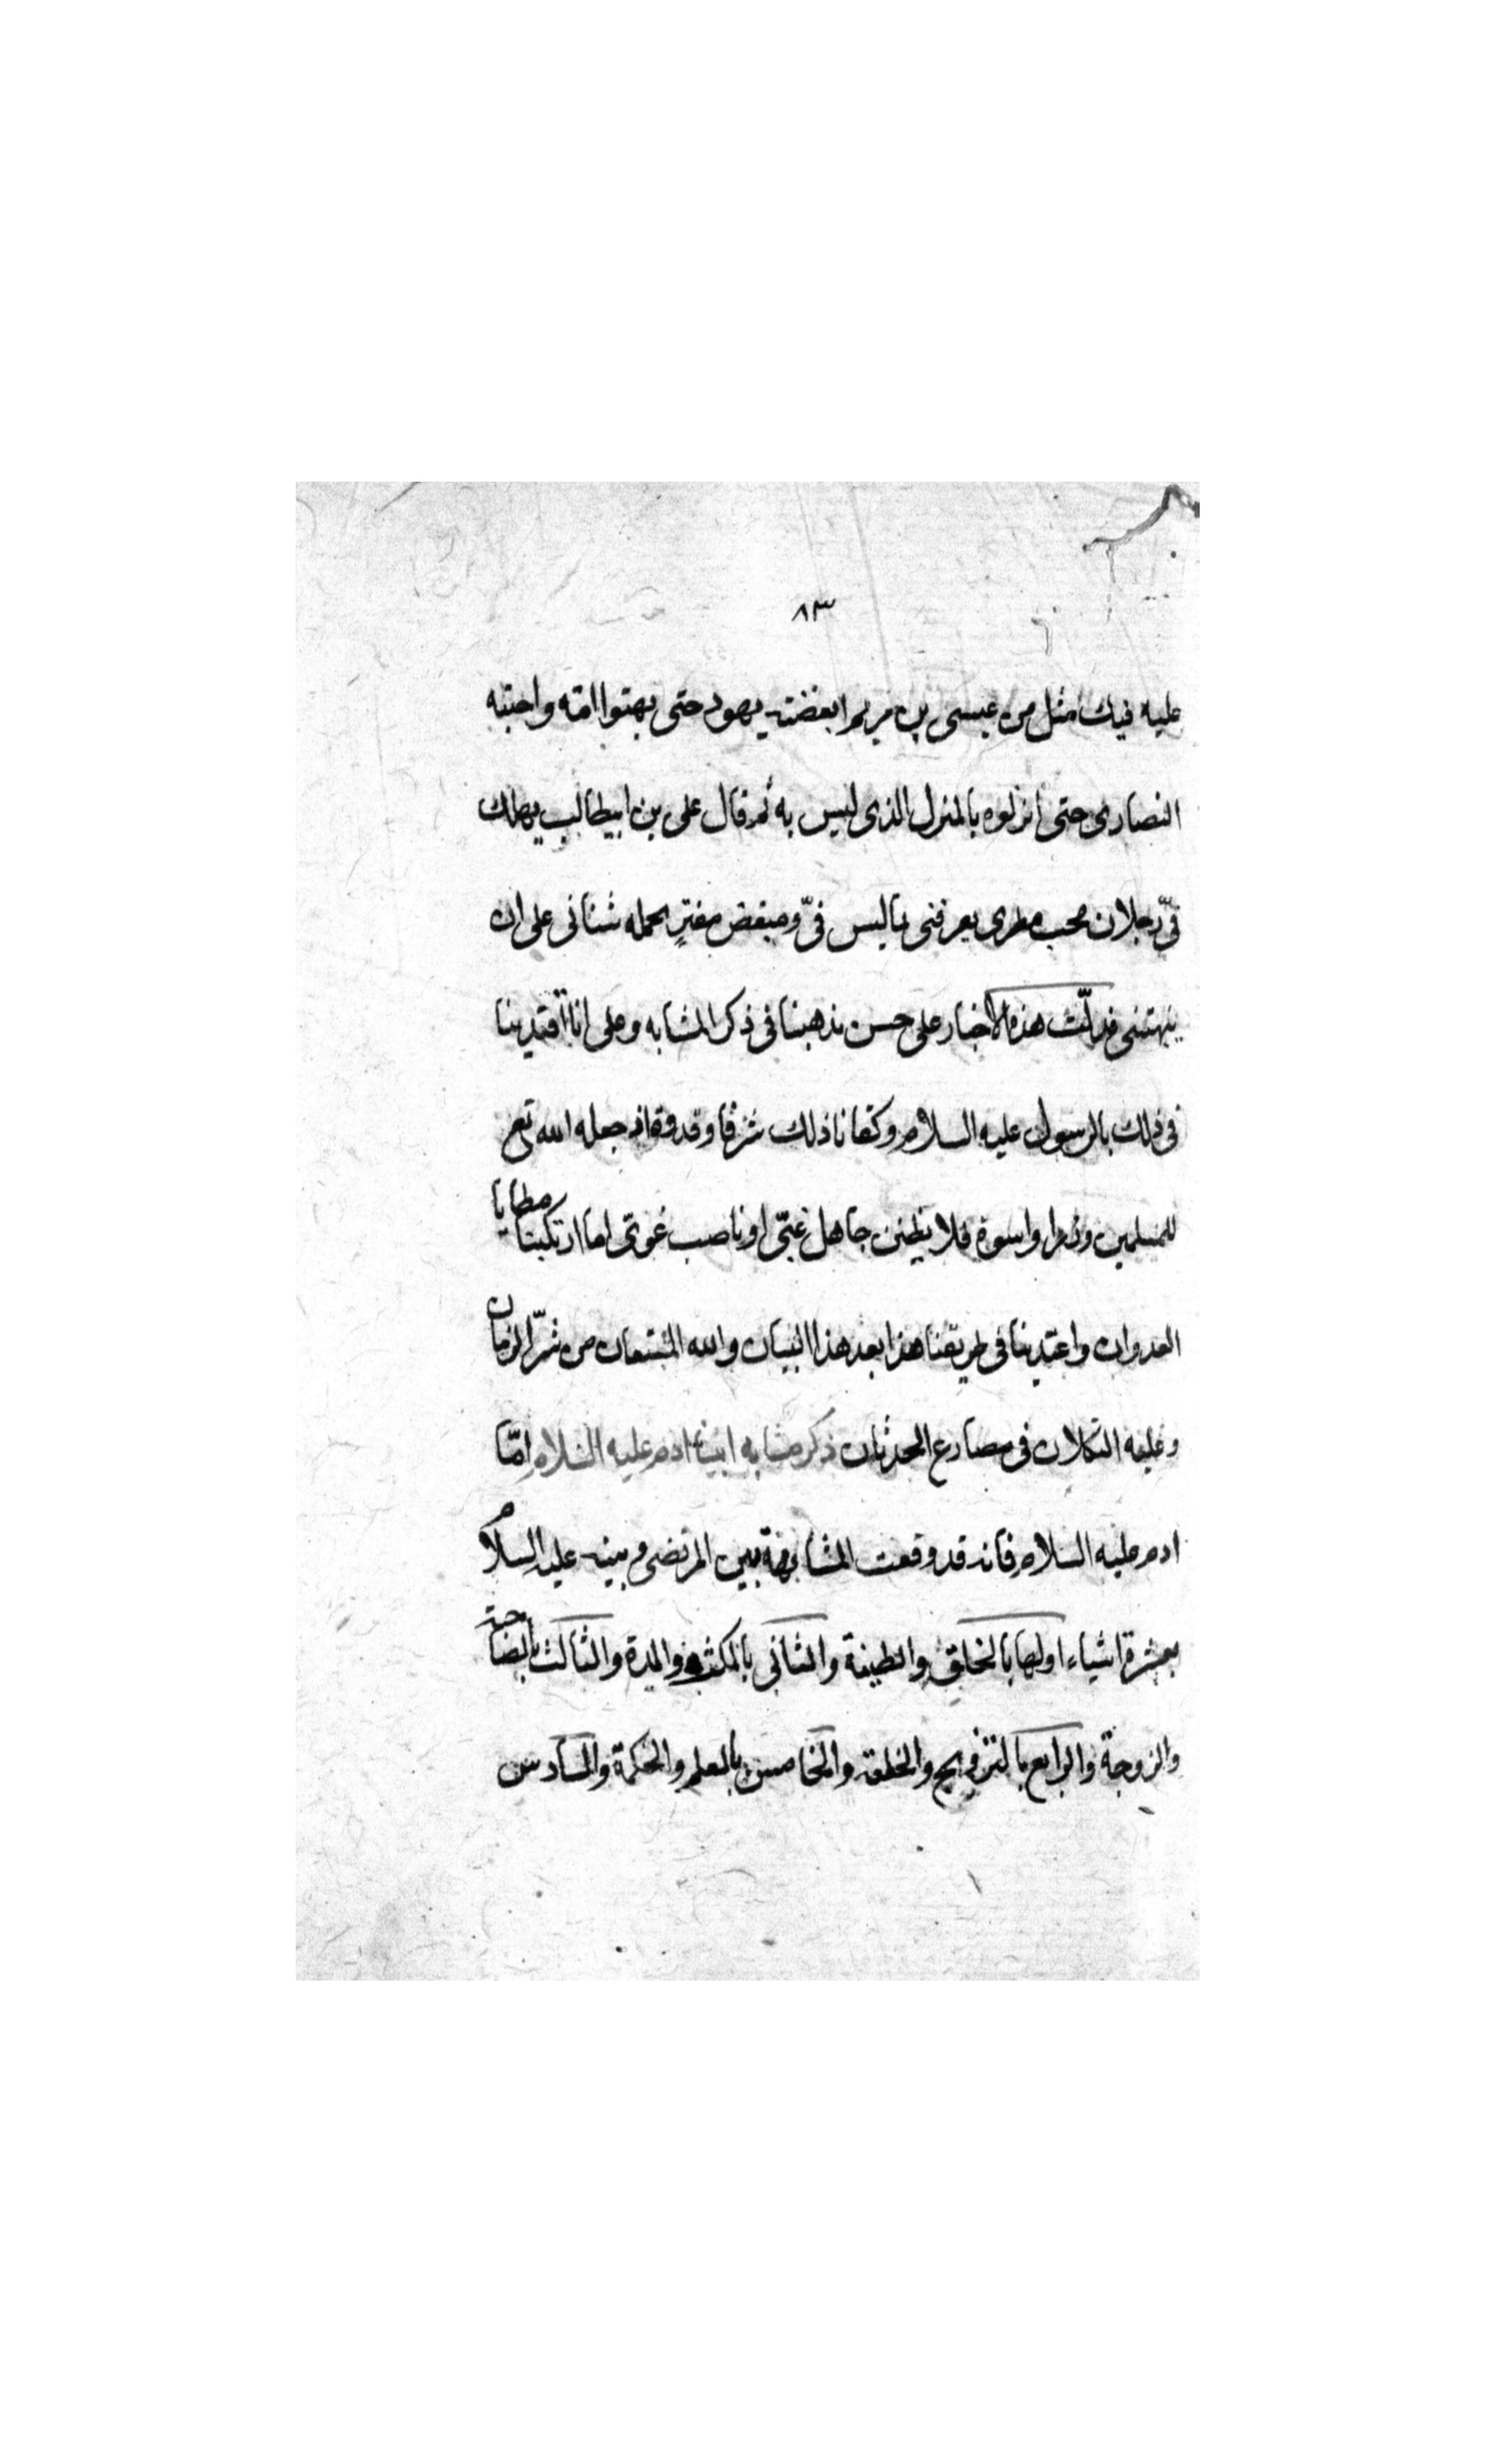 ٨٣
عليه فيك مثل من عيسى بن مريم ابغضته يهود حتى بهتوا امّه واحبّته
النصارى حتى انزلوه بالمنزل الذى ليس به ثم قال على بن ابيطالب يهلك
فىّ رجلان محب مطرى يعرفنى بما ليس فىّ ومبغض مفترٍ يحمله شنانى على ان
يبهتنى فدلّت هذه الاخبار على حسن مذهبنا فى ذكر المشابه وعلى انا اقتدينا
فى ذلك بالرسول عليه السلام وكفانا ذلك شرفا وقدوة اذ جعله الله تع
للمسلمين واسوة فلا يظنن جاهل غبىّ او ناصب غوىّ انا ارتكبنا مطايا
العدوان واعتدينا فى طريقنا هذا بعد هذا البيان والله المستعان من شرّ الزمان
وعليه التكلان فى مصارع الحدثان ذكر مشابه ابينا ادم عليه السلام امّا
ادم عليه السلام فانه قد وقعت المشابهة بين المرتضى وبينه عليه السلام
بعشرة اشياء اولها بالخلق والطينة والثانى بالمكث والمدة والثالث بالصاحبة
والزوجة والرابع بالتزويج والخلعة والخامس بالعلم والحكمة والسادس